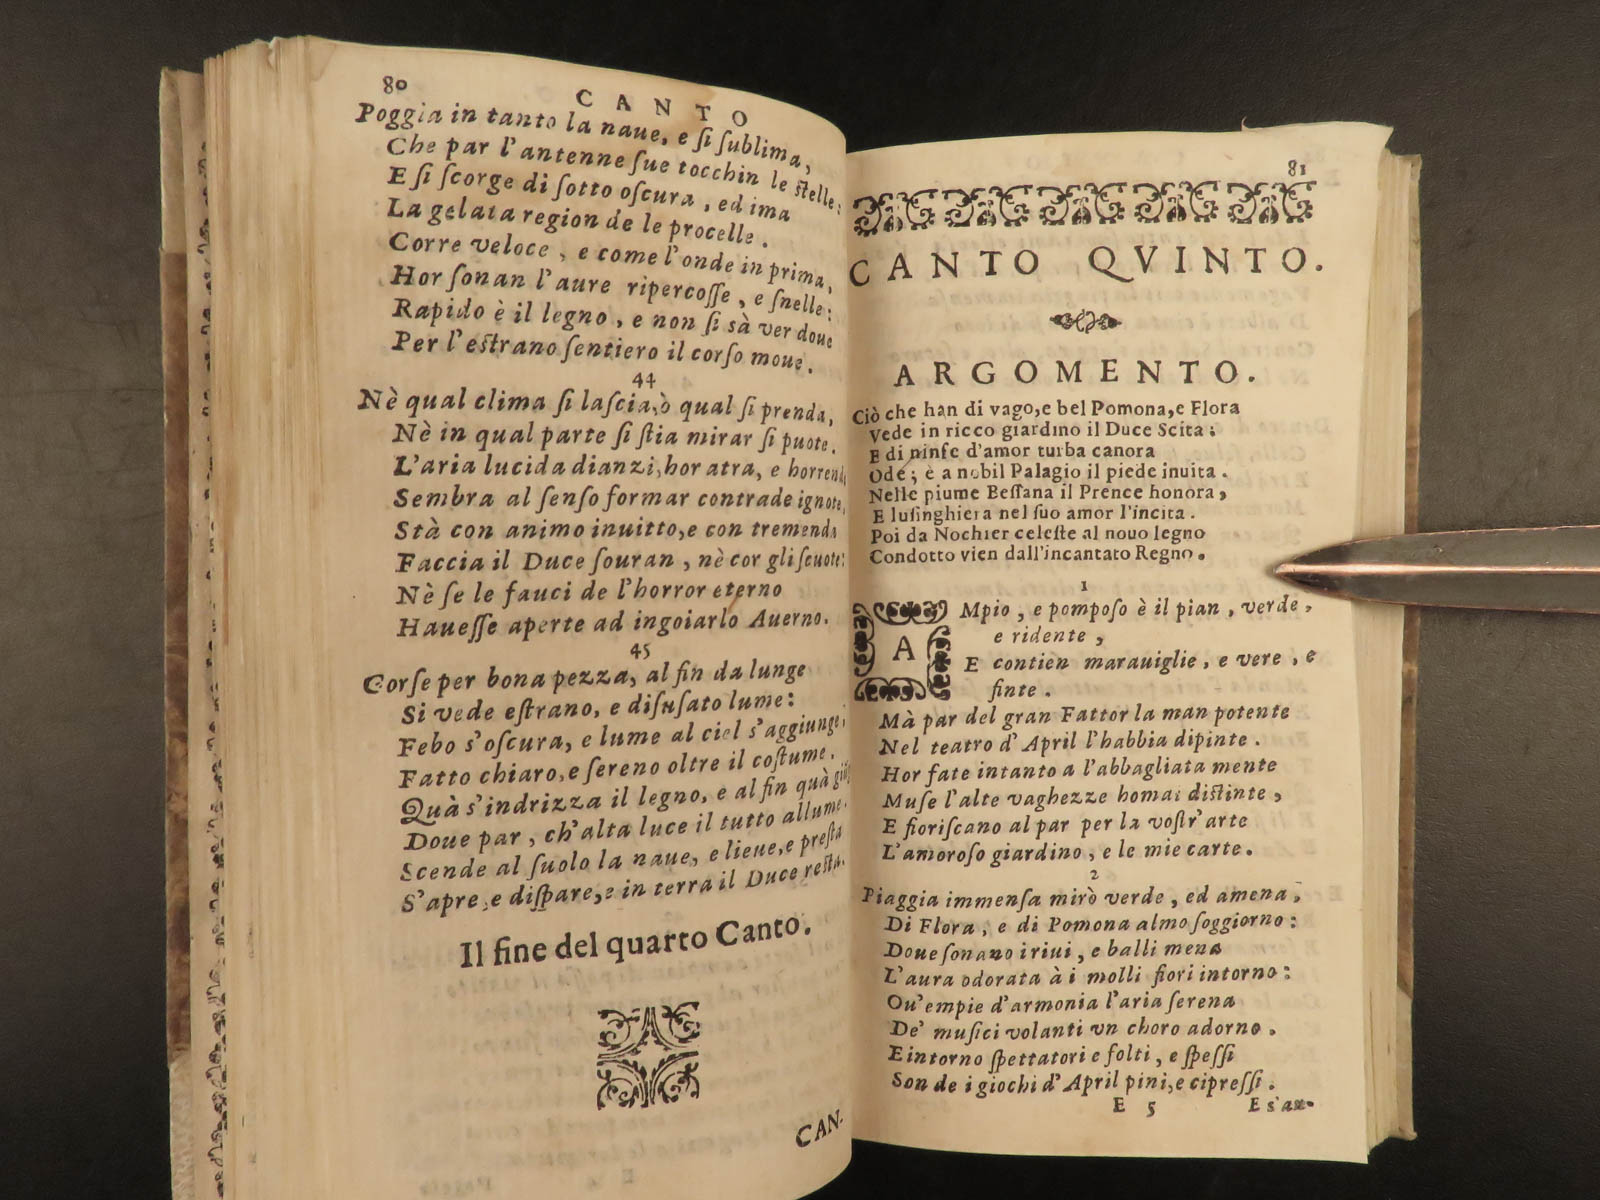 80
CANTO
Poggia in tanto la naue, e ſi ſublima,
Che par l'antenne ſue tocchin le ſtelle:
E ſi ſcorge di ſotto oſcura, ed ima
La gelata region de le procelle.
Corre veloce, e come l'onde in prima,
Hor ſonan l'aure ripercoſſe, e ſnelle:
Rapido è il legno, e non ſi sà ver doue
Per l'eſtrano ſentiero il corſo moue.
44
Nè qual clima ſi laſcia, ò qual ſi prenda,
Nè in qual parte ſi ſtia mirar ſi puote.
L'aria lucida dianzi, hor atra, e horrenda
Sembra al ſenſo formar contrade ignote,
Stà con animo inuitto, e con tremenda
Faccia il Duce ſouran, nè cor gli ſcuote:
Nè ſe le fauci de l'horror eterno
Haueſſe aperte ad ingoiarlo Auerno.
45
Corſe per bona pezza, al fin da lunge
Si vede eſtrano, e diſuſato lume:
Febo s'oſcura, e lume al ciel s'aggiunge,
Fatto chiaro, e ſereno oltre il coſtume.
Quà s'indrizza il legno, e al fin quà
Doue par, ch'alta luce il tutto allume.
Scende al ſuolo la naue, e lieue, e preſta
S'apre, e diſpare, e in terra il Duce reſta.
Il fine del quarto Canto.
CAN-
81
CANTO QVINTO.
ARGOMENTO.
Ciò che han di vago, e bel Pomona, e Flora
Vede in ricco giardino il Duce Scita:
E di ninfe d'amor turba canora
Ode; è a nobil Palagio il piede inuita.
Nelle piume Beſſana il Prence honora,
E luſinghiera nel ſuo amor l'incita.
Poi da Nochier celeſte al nouo legno
Condotto vien dall'incantato Regno.
1
AMpio, e pompoſo è il pian, verde,
e ridente,
E contien marauiglie, e vere, e
finte.
Mà par del gran Fattor la man potente
Nel teatro d'April l'habbia dipinte.
Hor fate intanto a l'abbagliata mente
Muſe l'alte vaghezze homai diſtinte,
E fioriſcano al par per la voſtr'arte
L'amoroſo giardino, e le mie carte.
2
Piaggia immenſa mirò verde, ed amena,
Di Flora, e di Pomona almo ſoggiorno:
Doue ſonano i riui, e balli mena
L'aura odorata à i molli fiori intorno:
Ou'empie d'armonia l'aria ſerena
De' muſici volanti vn choro adorno.
E intorno ſpettatori e folti, e ſpeſſi
Son de i giochi d'April pini, e cipreſſi.
E 5 E s'an-